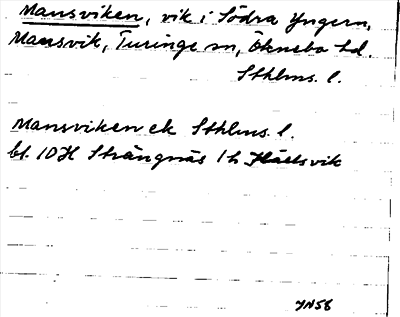 Mansviken, vik i Södra Yngern,
Mansvik, Turinge sn, Öknebo hd.
Sthlms. l.
Mansviken ek Sthlms. l.
bl. 10H Strängnäs 1h
YN58